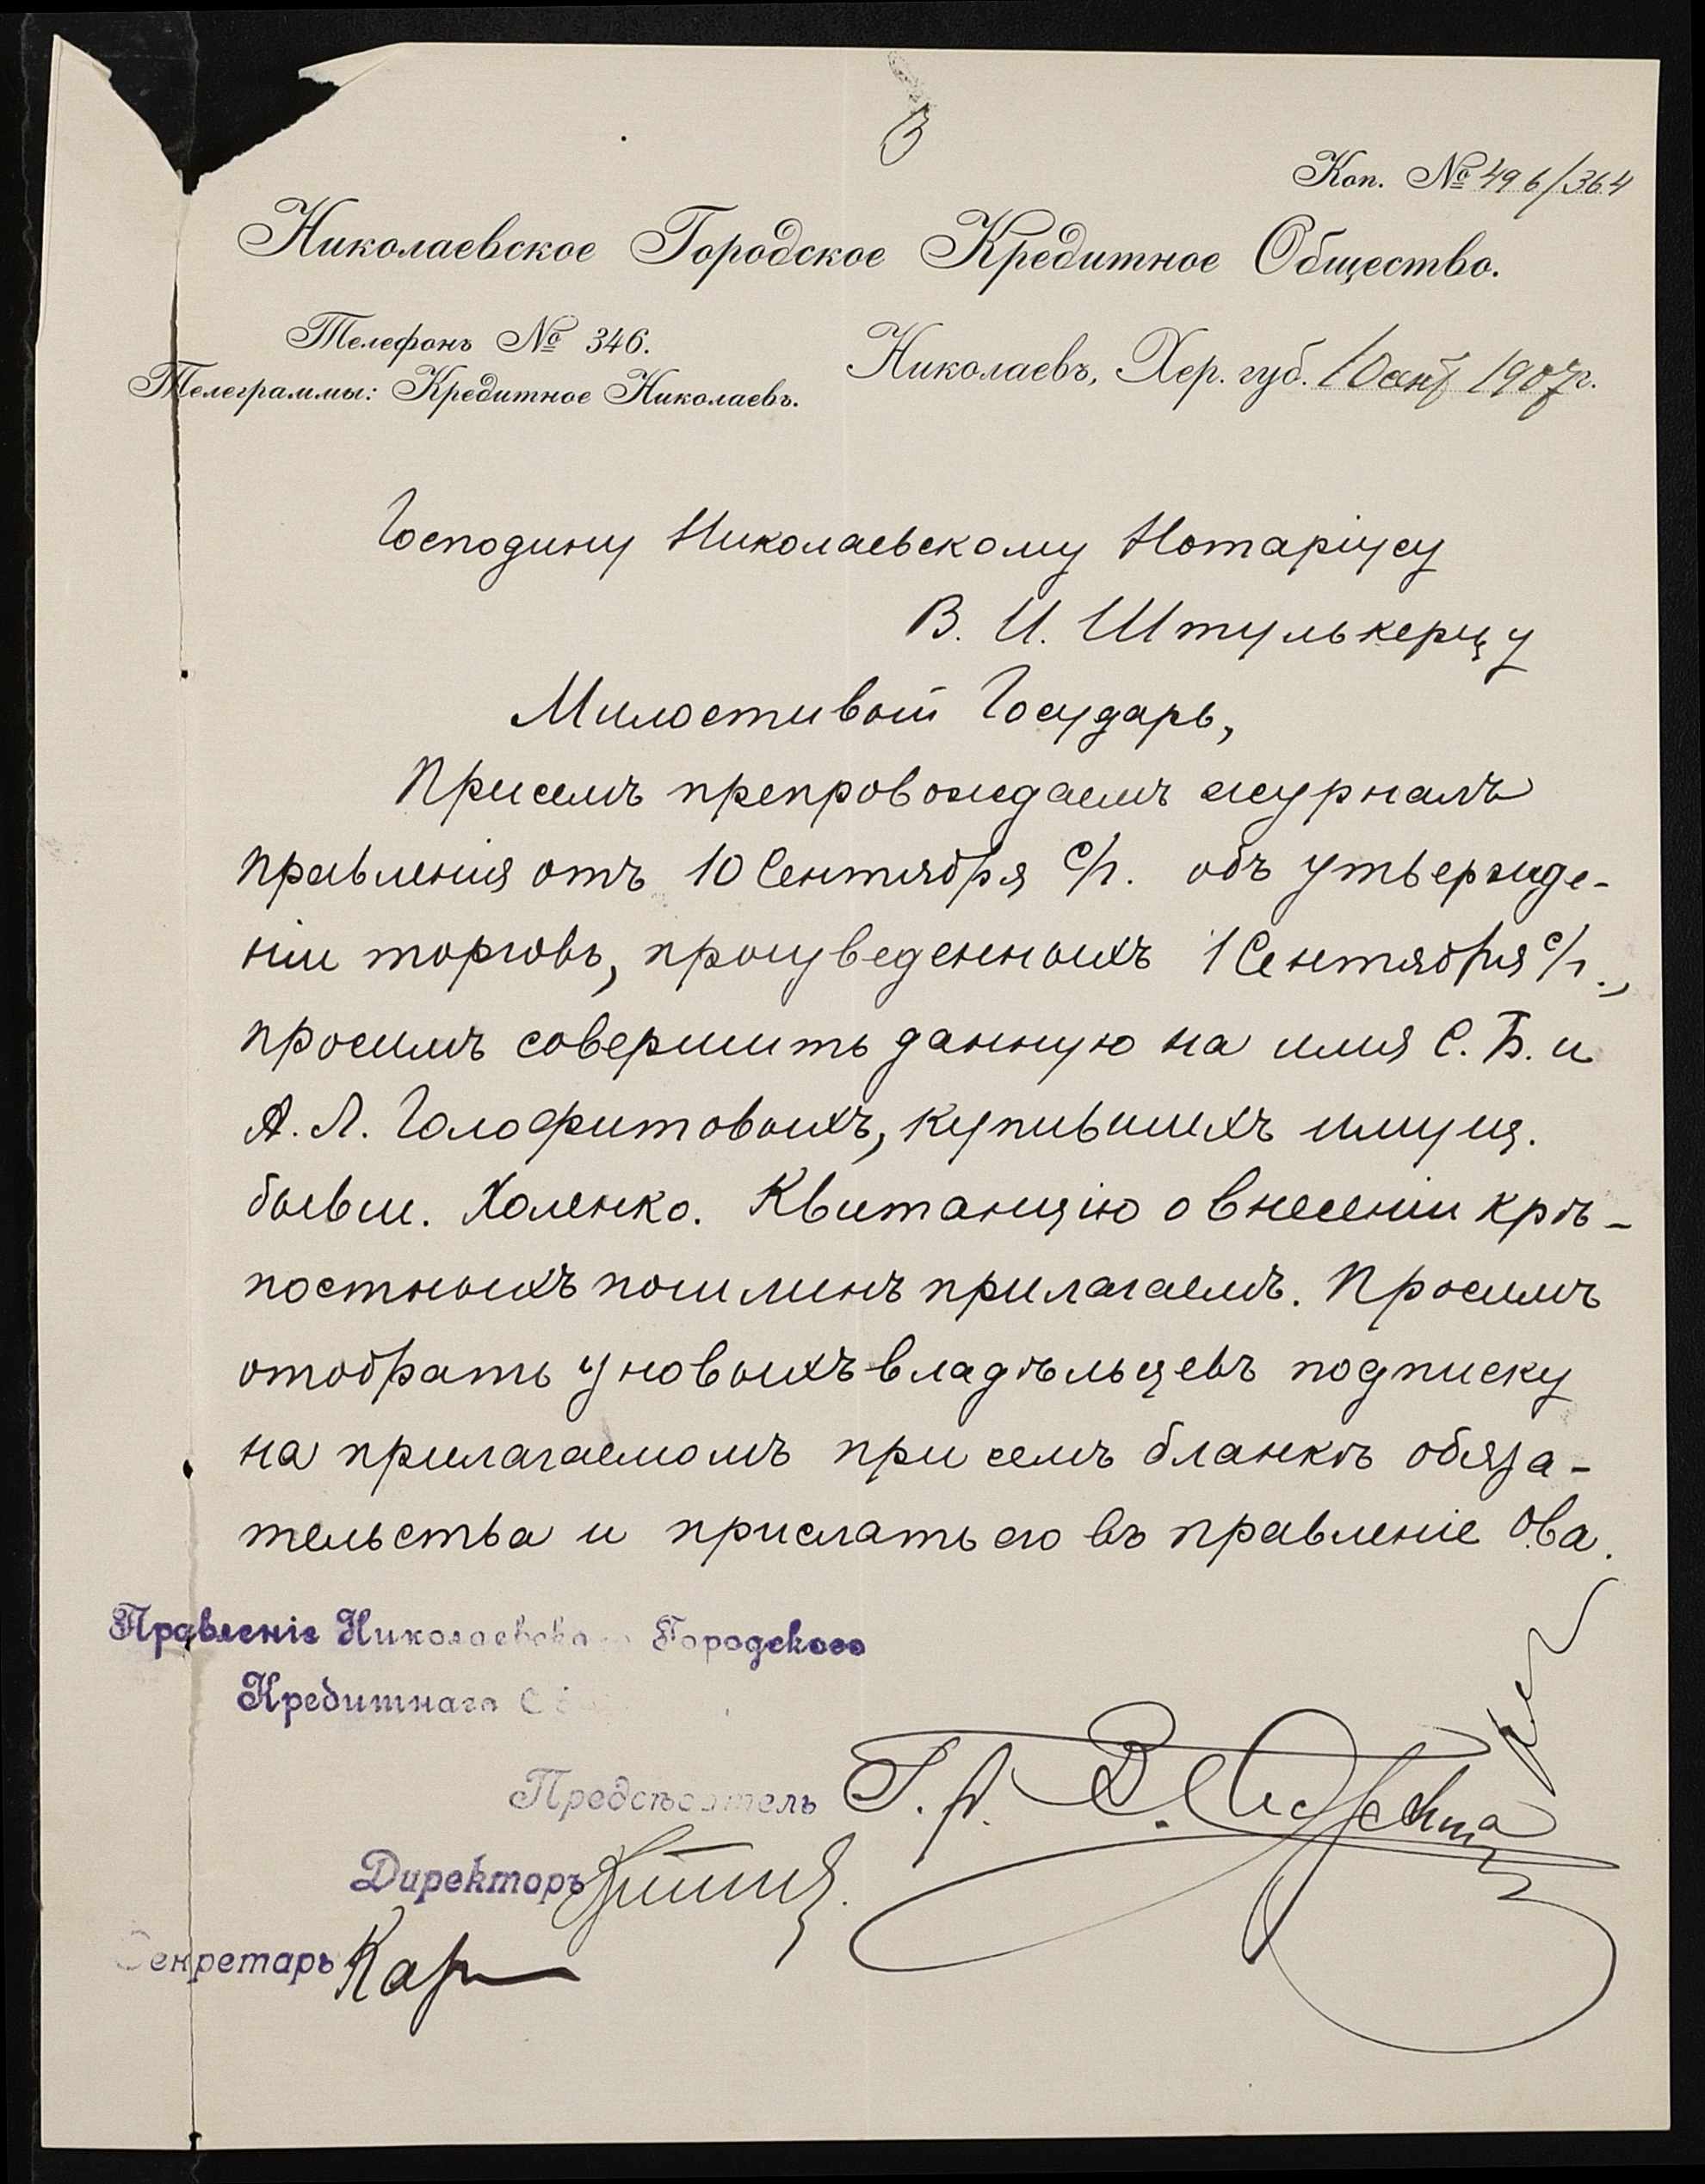 3
Коп. № 496/364
Николаевское Городское Кредитное Общество.
Телефонъ № 346.
Телеграммы: Кредитное Николаевъ.
Николаевъ, Хер. губ. 10 сент 1907г.
Господину Николаевскому Нотаріусу
В. И. Штулькерцу
Милостивый Государь,
При семъ препровождаемъ журналъ
правленія отъ 10 Сентября с/г. объ утвержде-
ніи торговъ, произведенныхъ 1 Сентября с/г.,
просимъ совершить данную на имя С. Б. и
А. Л. Голофитовыхъ, купившихъ имущ.
бывш. Холенко. Квитанцію о внесеніи крѣ-
постныхъ пошлинъ прилагаемъ. Просимъ
отобрать у новыхъ владѣльцевъ подписку
на прилагаемомъ при семъ бланкѣ обяза-
тельства и прислать его въ правленіе О.ва.
Правленіе Николаевскаго Городского
Кредитнаго
Предсѣдатель
Директоръ
Секретарь